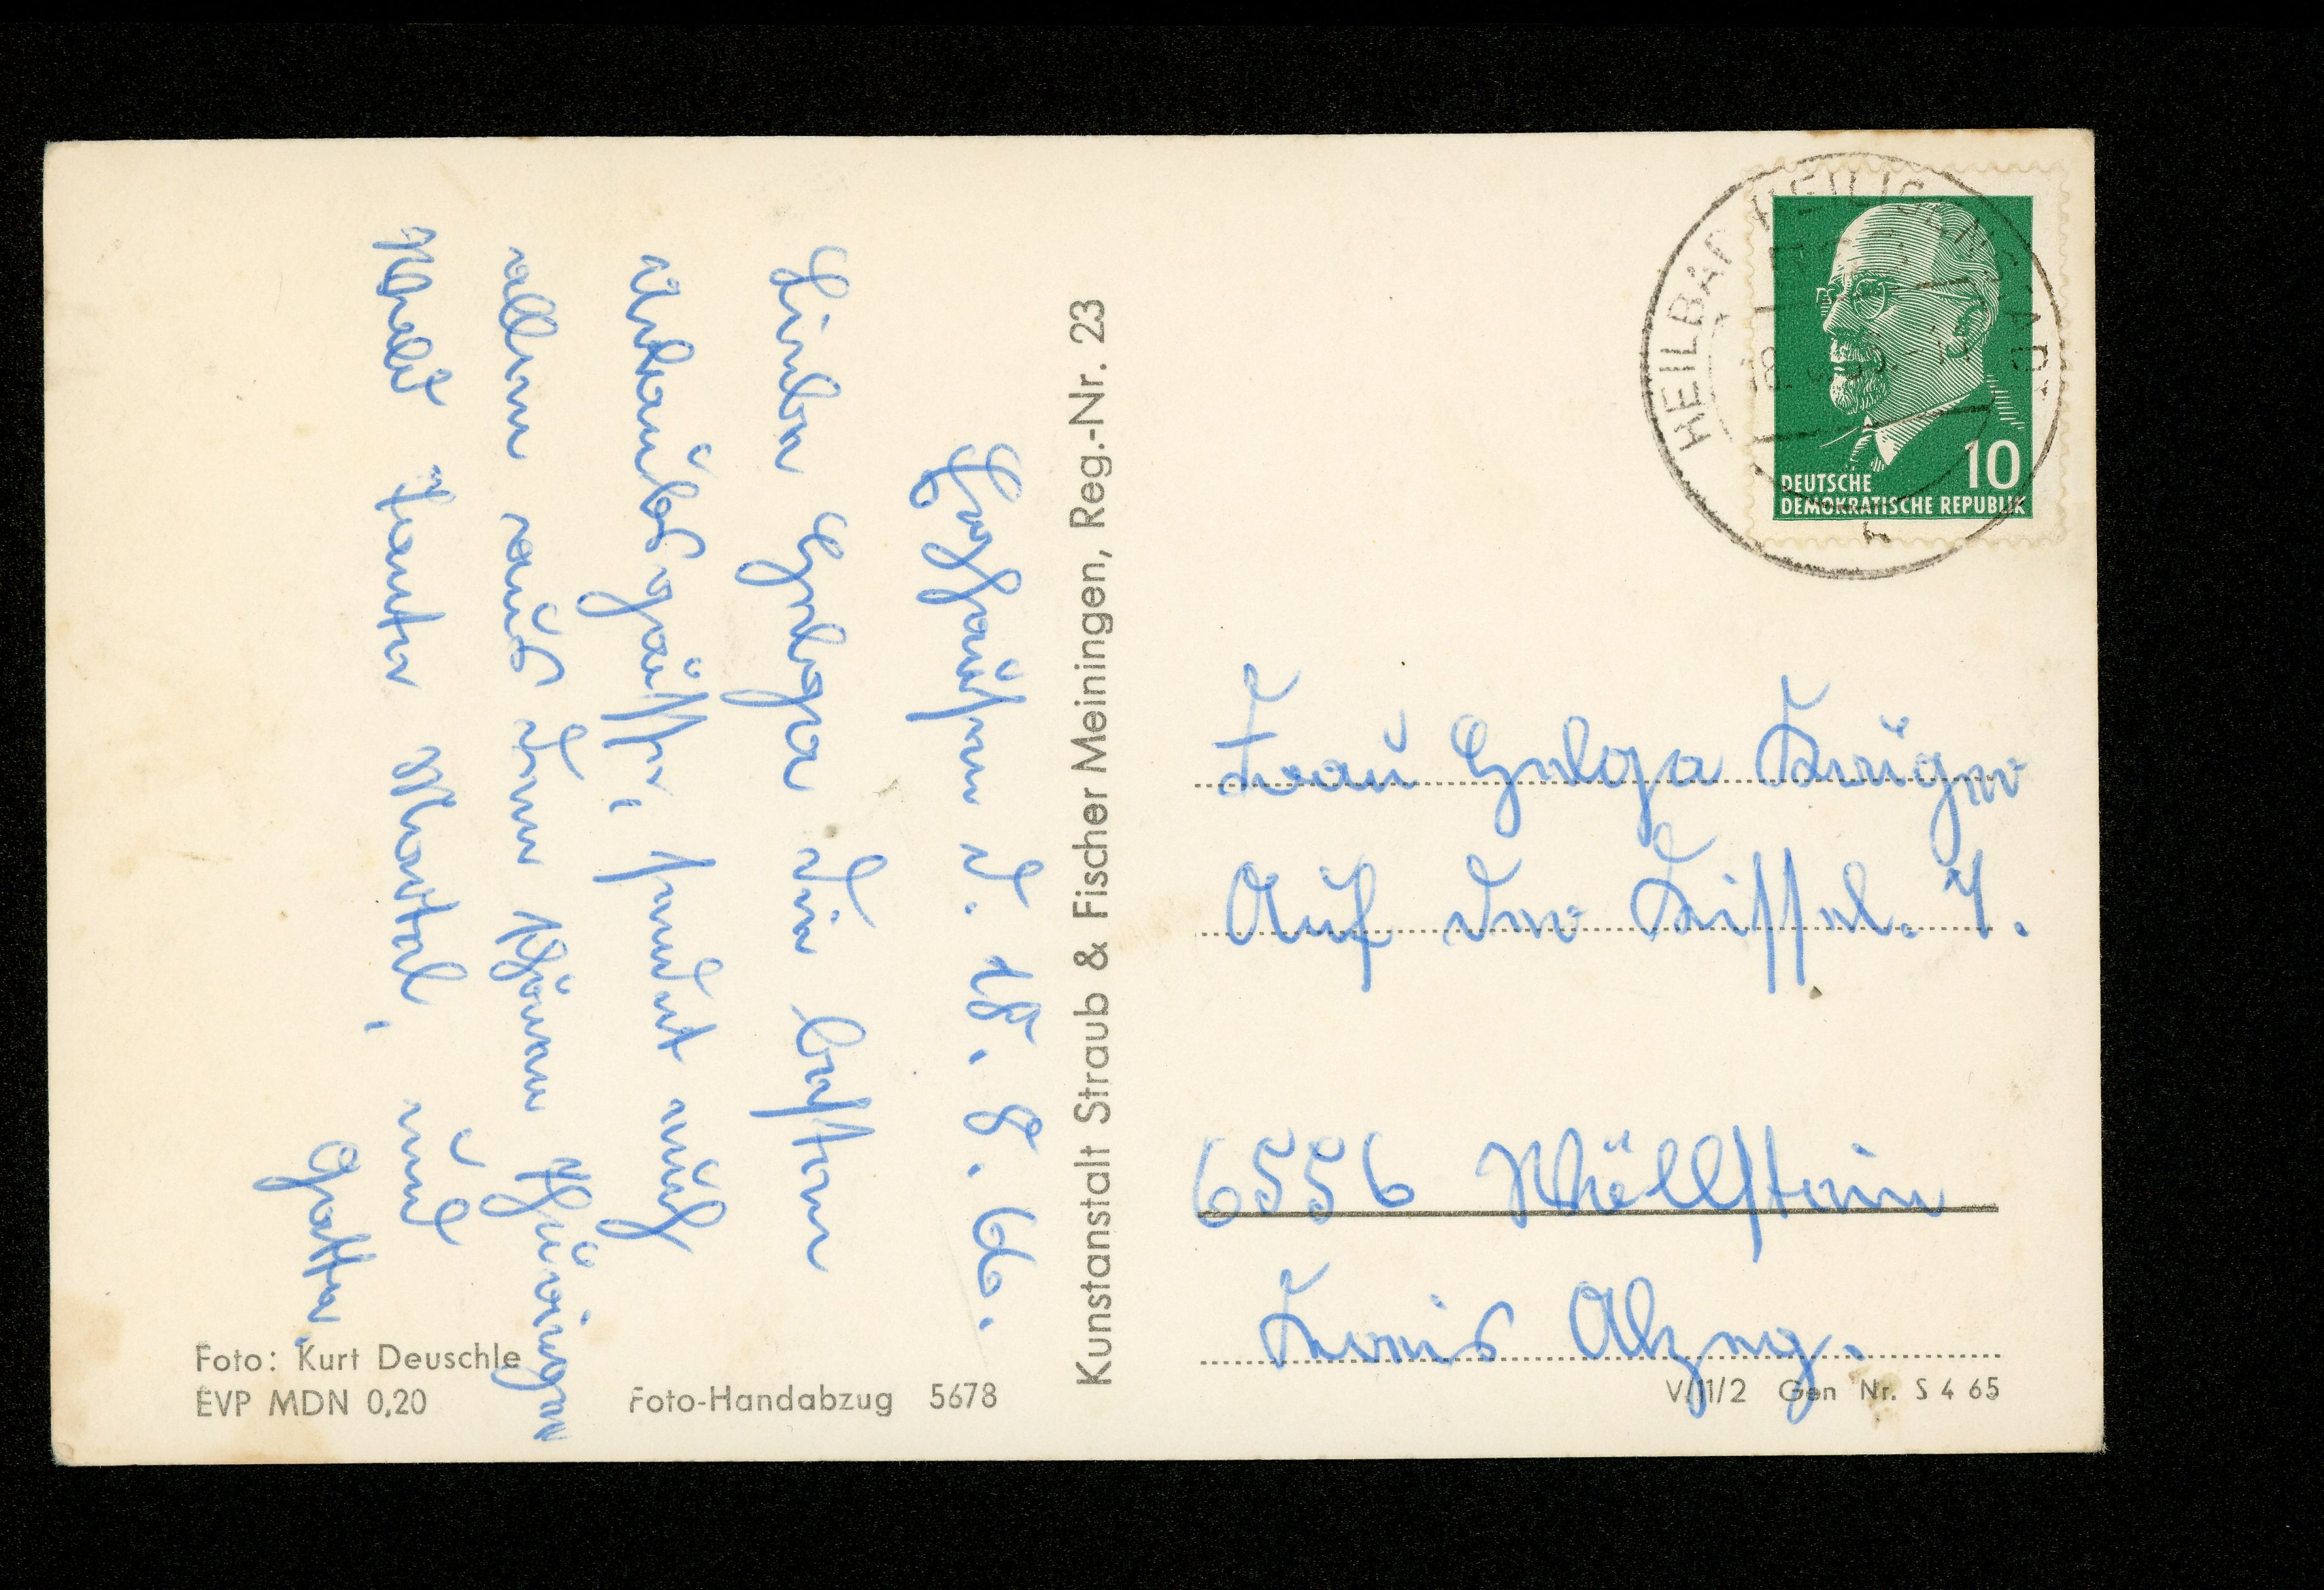 d. 18.8.66.
Liebe Helga die besten
Urlaubsgrüsse, sendet euch
allen aus dem schönen Thüringen
Tante Martel, und
Frau Helga Krüger
Auf der Kissel. 7.
6556 Wöllstein
Kreis Alzey.
HEILBAD HEILIGENSTADT
10
DEUTSCHE
DEMOKRATISCHE REPUBLIK
Kunstanstalt Straub & Fischer Meiningen, Reg.-Nr. 23
Foto: Kurt Deuschle
EVP MDN 0,20
Foto-Handabzug 5678
V/11/2 Gen Nr. S 4 65